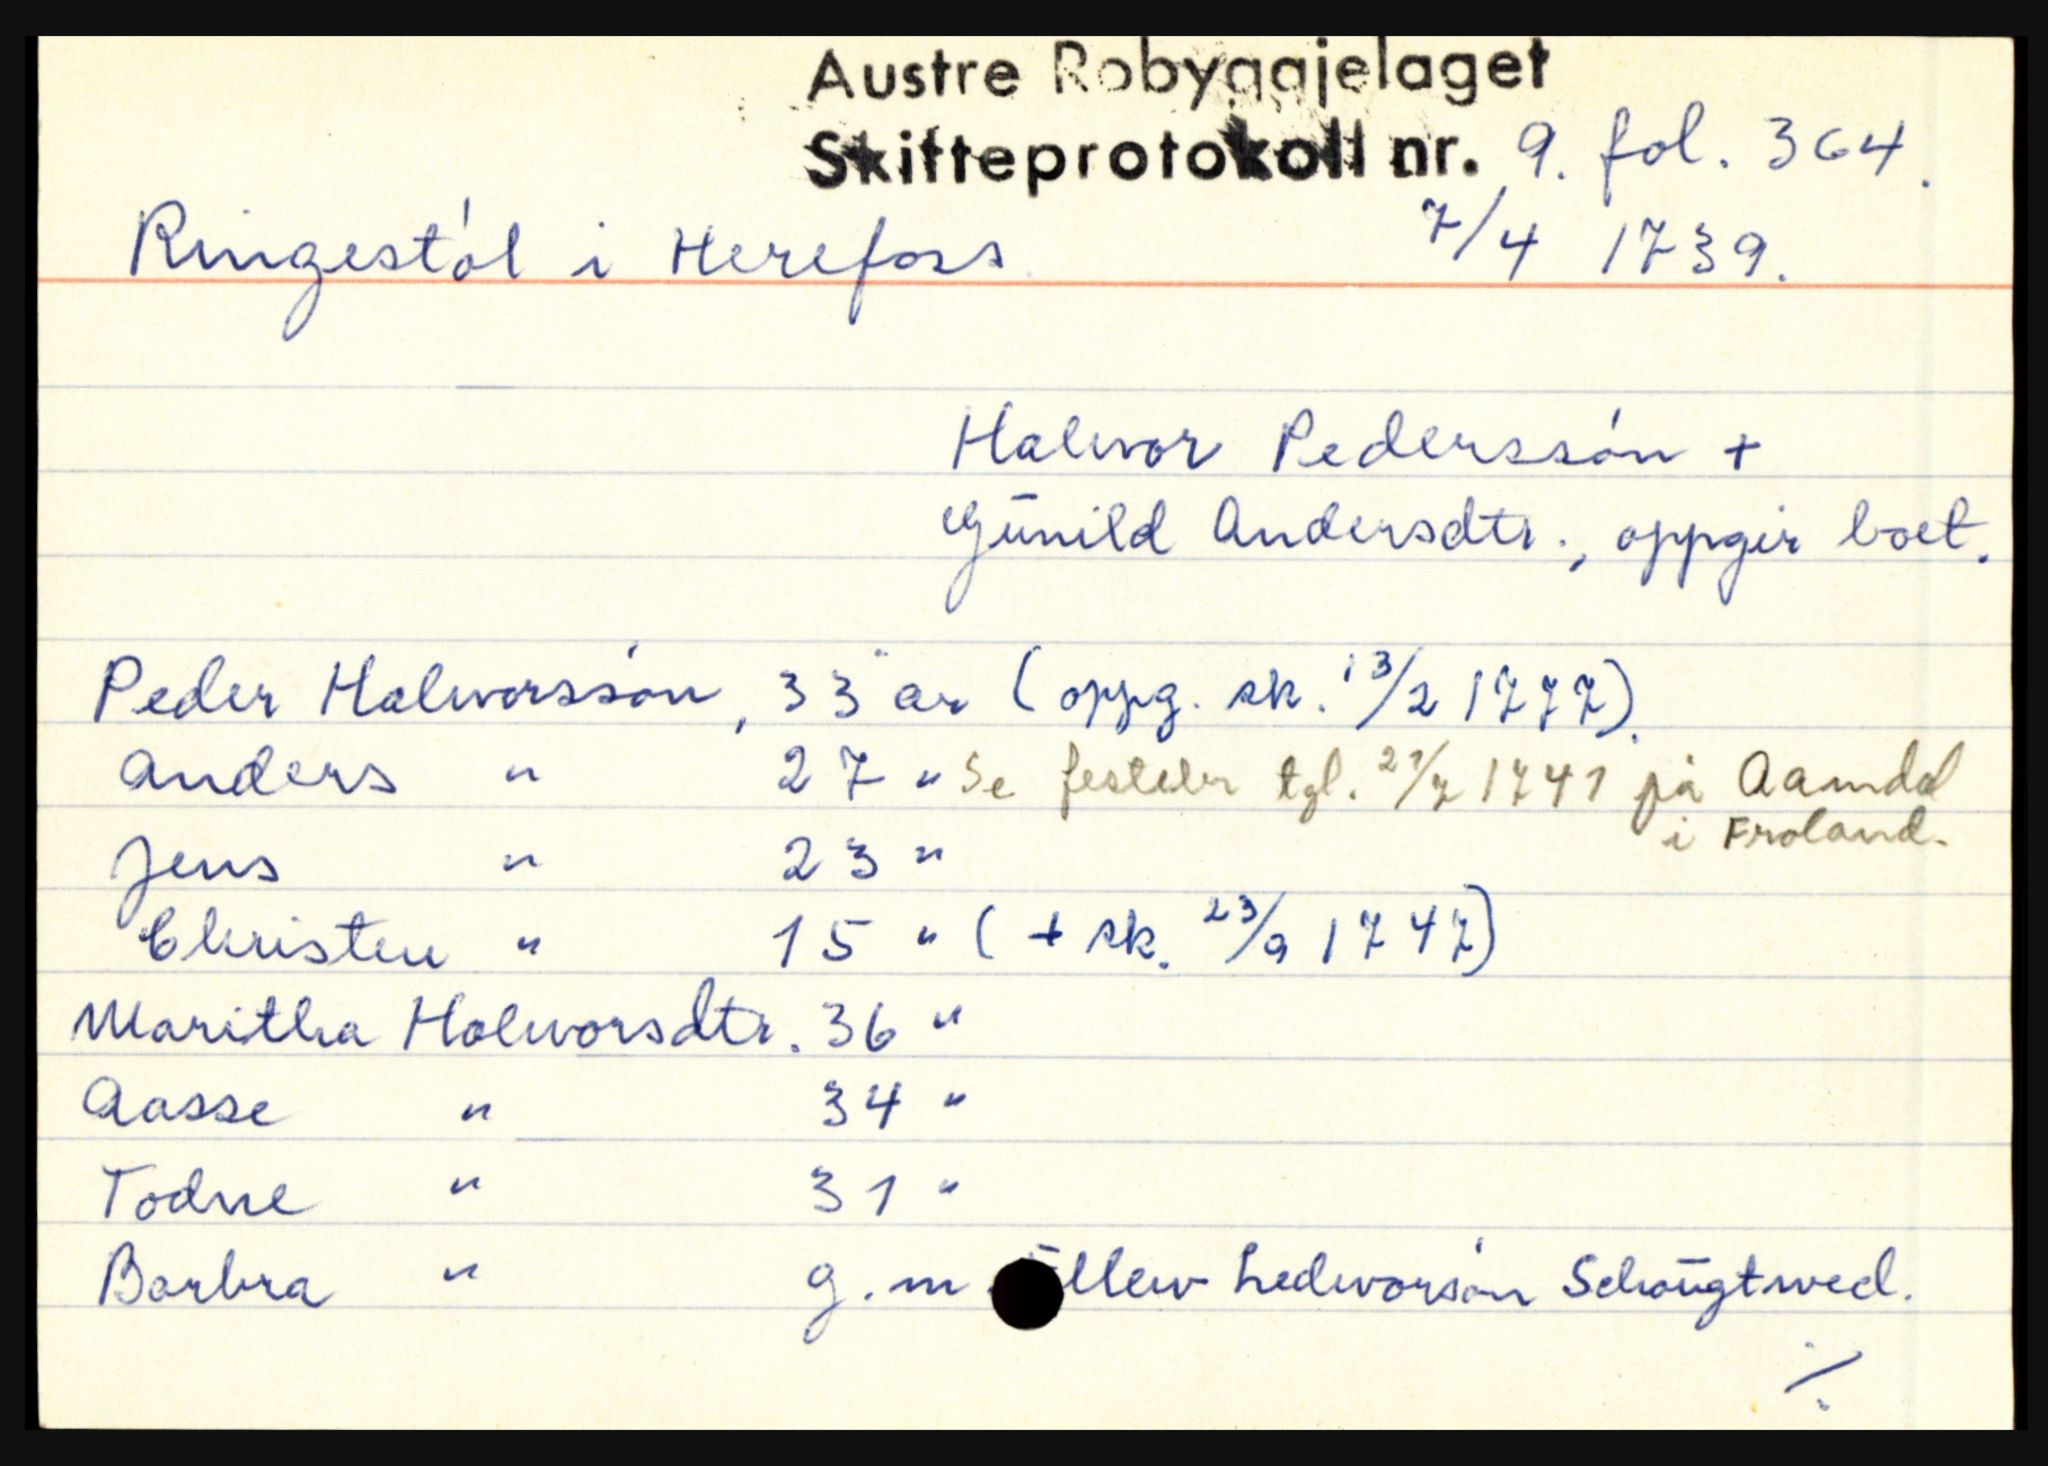 Austre Robyggjelaget
Skifteprotokoll nr. 9. fol. 364.
Ringestól i Herefoss. 7/4 1739.
Halvor Pederssón +
Gūnild Andersdtr., oppgir boet.
Peder Halvorssón, 33 år (oppg. sk. 13/2 1777).
Anders " 27 " Se festebr tgl. 21/7 1741 på Aamdal
i Froland.
Jens " 23 "
Christen " 15 " (+ sk. 23/9 1747)
Maritha Halvorsdtr. 36 "
Aasse " 34 "
Todne " 31 "
Barbra " g.m. Ledvorsón Schōugtwed.
./.